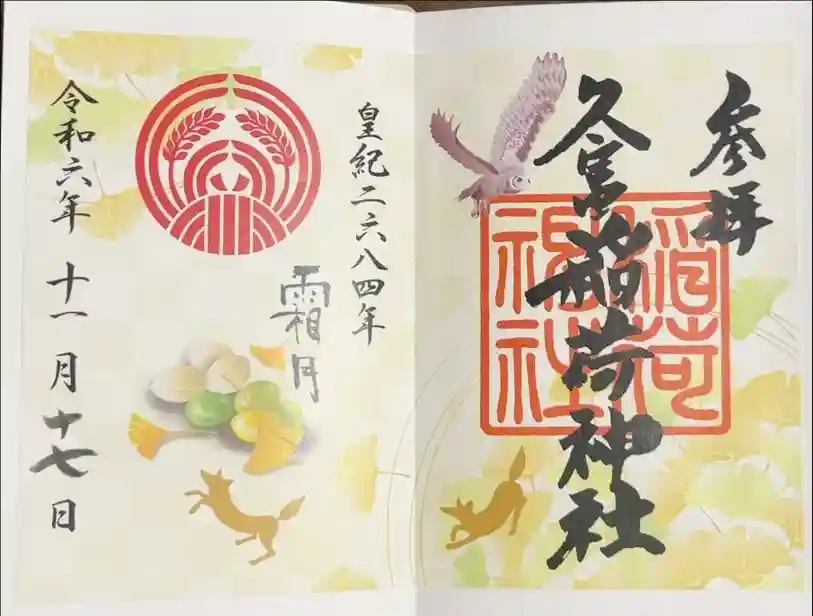 参拝
久富稲荷神社
稲荷
神社
皇紀二六八四年
霜月
令和六年十一月十七日